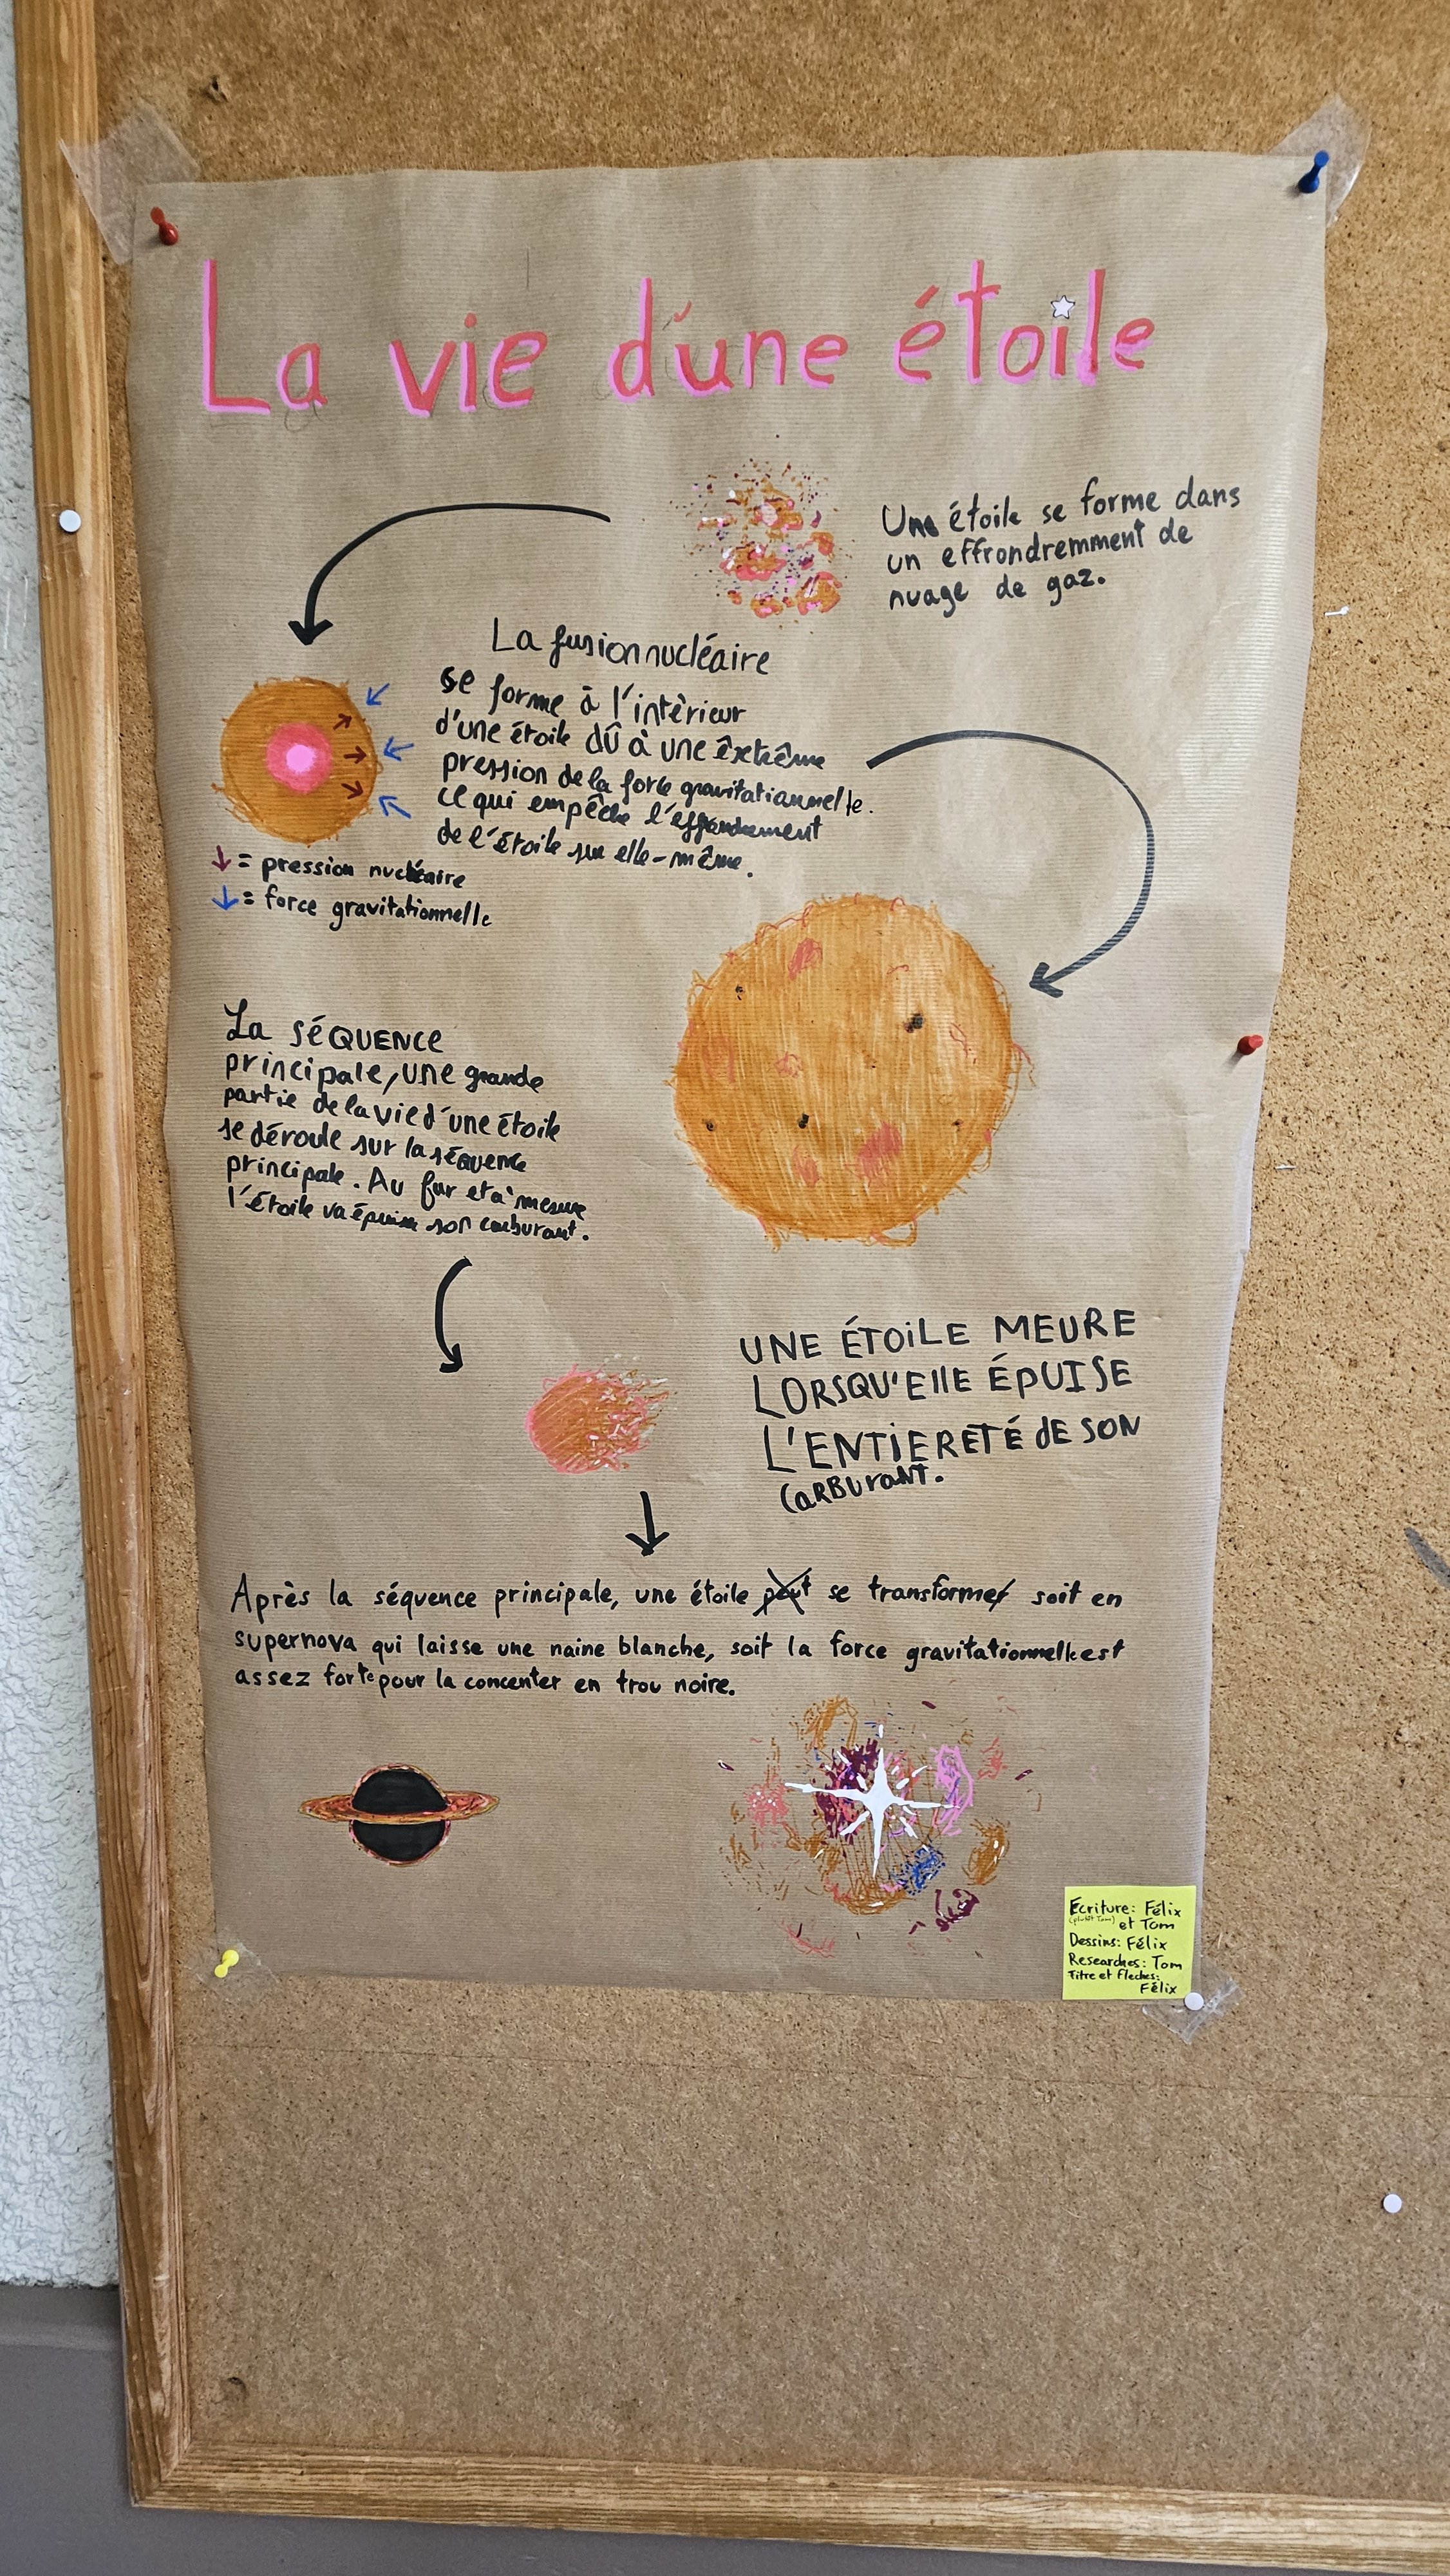 La vie d'une étoile
Une étoile se forme dans
un effrondremment de
nuage de gaz.
La fusion nucléaire
se forme à l'intèrieur
d'une étoile dû à une êxtrême
pression de la force gravitationnelle.
ce qui empêche l'effondrement
de l'étoile sur elle-même.
↓ = pression nucléaire
↓ = force gravitationnelle
La SÉQUENCE
principale, une grande
partie de la vie d'une étoile
se déroule sur la séquence
principale. Au fur et à mesure
l'étoile va épuiser son carburant.
UNE ÉTOiLE MEURE
LORSQU'EllE ÉPUISE
L'ENTiERETÉ dE SON
CaRBUraNT.
Après la séquence principale, une étoile peut se transformer soit en
supernova qui laisse une naine blanche, soit la force gravitationnelle est
assez forte pour la concenter en trou noire.
Ecriture: Félix
(plutôt Tom) et Tom
Dessins: Félix
Researches: Tom
Titre et fleches:
Félix